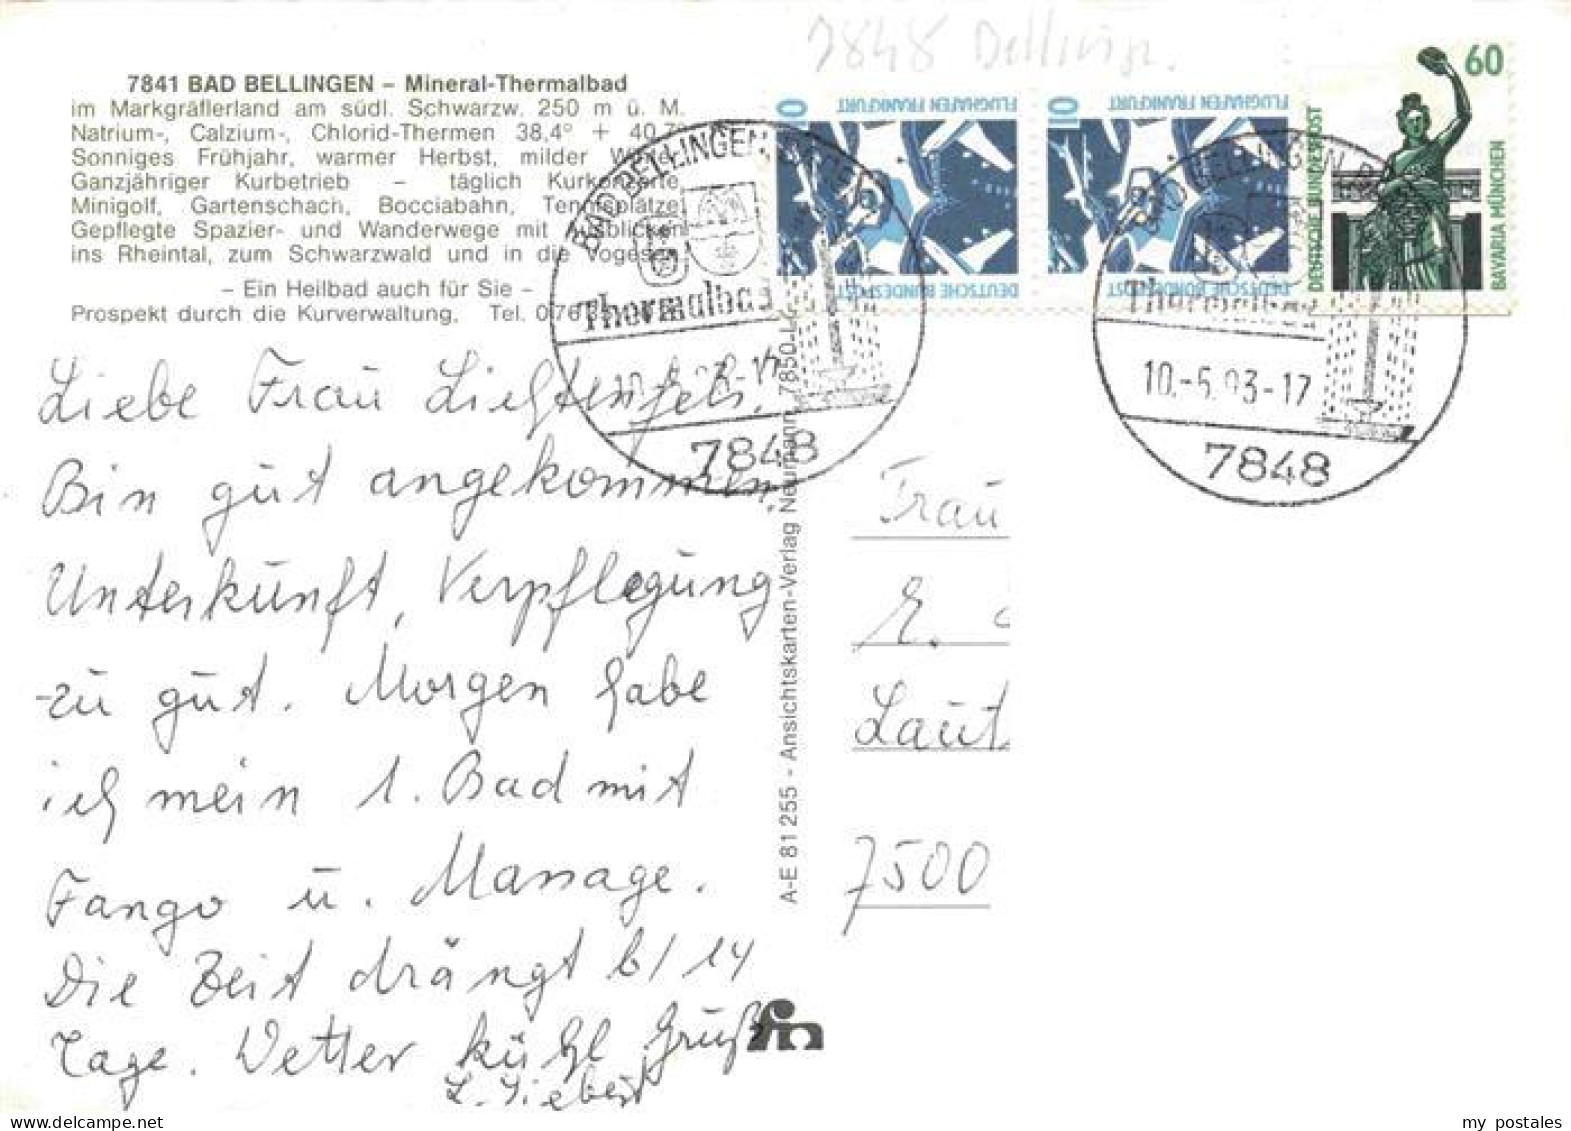 7848 Bellingen
7841 BAD BELLINGEN – Mineral-Thermalbad
im Markgräflerland am südl. Schwarzw. 250 m ü. M.
Natrium-, Calzium-, Chlorid-Thermen 38,4° + 40,7°
Sonniges Frühjahr, warmer Herbst, milder Winter
Ganzjähriger Kurbetrieb – täglich Kurkonzerte,
Minigolf, Gartenschach, Bocciabahn, Tennisplätze,
Gepflegte Spazier- und Wanderwege mit Ausblicken
ins Rheintal, zum Schwarzwald und in die Vogesen.
– Ein Heilbad auch für Sie –
Prospekt durch die Kurverwaltung, Tel. 076
10
FLUGHAFEN FRANKFURT
DEUTSCHE BUNDESPOST
10
FLUGHAFEN FRANKFURT
DEUTSCHE BUNDESPOST
60
DEUTSCHE BUNDESPOST
BAVARIA MÜNCHEN
BAD BELLINGEN
Thermalbad
7848
BAD BELLINGEN
Thermalbad
10.-5.93-17
7848
Liebe Frau Lichtenfels,
Bin gut angekommen,
Unterkunft, Verpflegung
zu gut. Morgen habe
ich mein 1. Bad mit
Fango u. Massage.
Die Zeit drängt b/ 14
Tage. Wetter kühl Gruß
L. Siebert
A-E 81 255 - Ansichtskarten-Verlag Neumann, 7850 L
fn
Frau
E.
Laut
7500
my postales